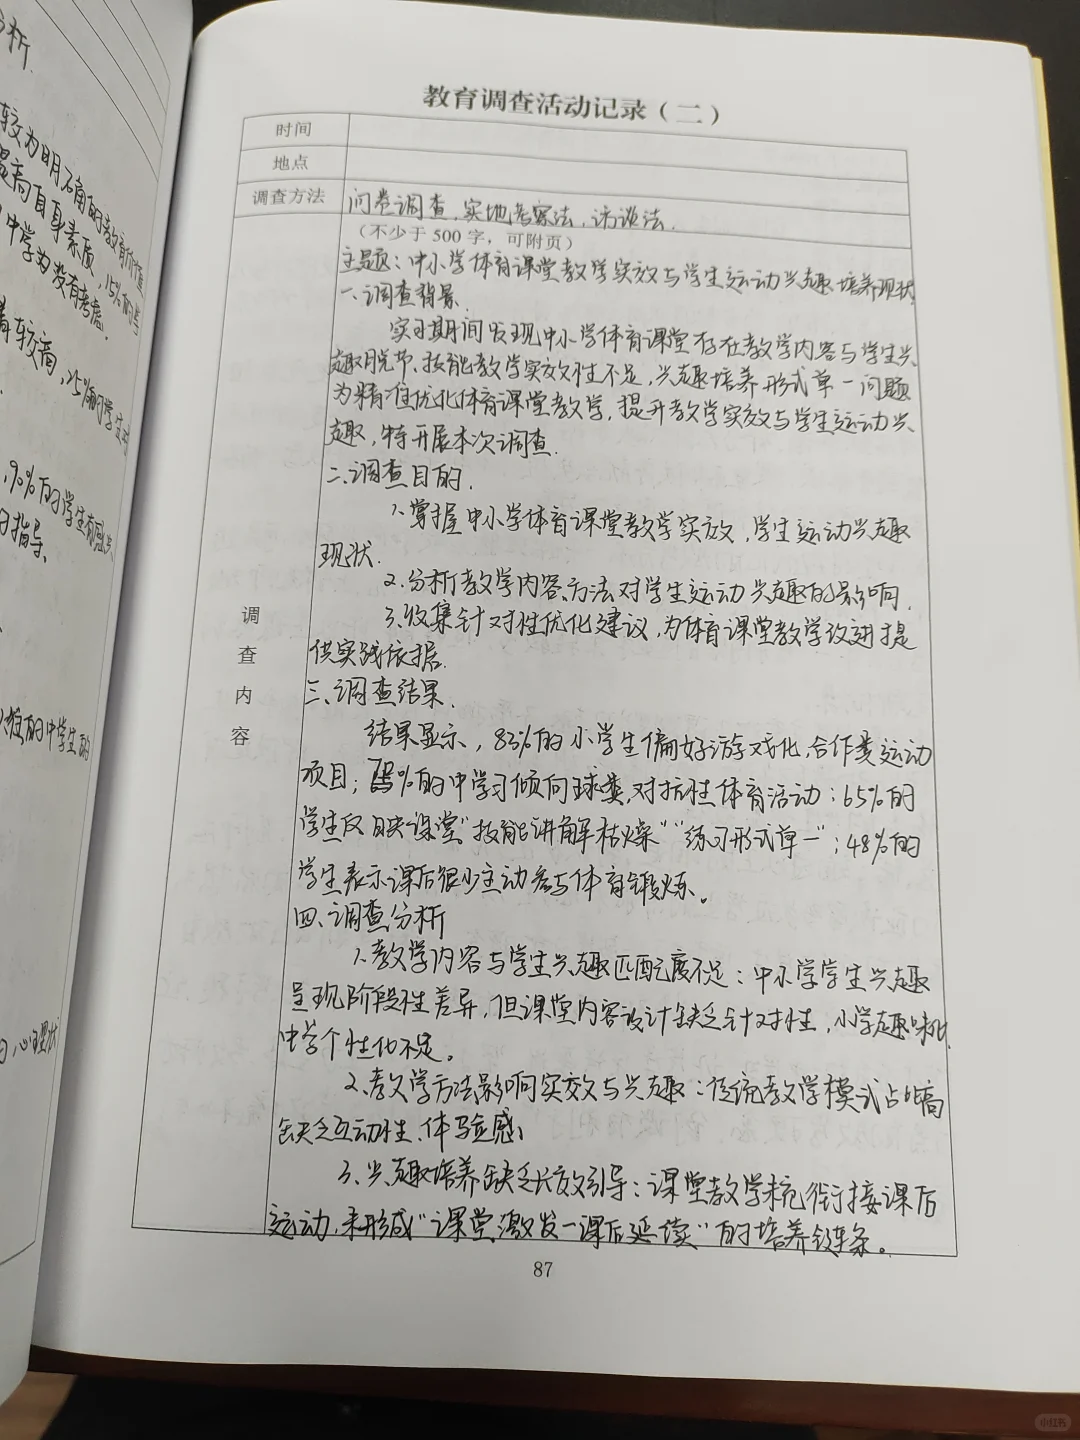 分析.
较为明确的教育价值
提高自身素质,15%的学
中学为没有考虑.
着较高,25%的学生
,90%的学生有感兴
的指导、
难的中学生的
心理状
教育调查活动记录(二)
时间
地点
调查方法
问卷调查,实地考察法,访谈法.
(不少于 500 字,可附页)
调查内容
主题:中小学体育课堂教学实效与学生运动兴趣培养现状.
一.调查背景.
实习期间发现中小学体育课堂存在教学内容与学生兴
趣脱节、技能教学实效性不足,兴趣培养形式单一问题
为精准优化体育课堂教学,提升教学实效与学生运动兴
趣,特开展本次调查.
二.调查目的.
1.掌握中小学体育课堂教学实效,学生运动兴趣
现状.
2.分析教学内容、方法对学生运动兴趣的影响.
3.收集针对性优化建议,为体育课堂教学改进提
供实践依据.
三.调查结果.
结果显示,83%的小学生偏好游戏化,合作类运动
项目;%的中学习倾向球类,对抗性体育活动:65%的
学生反映课堂"技能讲解枯燥""练习形式单一";48%的
学生表示课后很少主动参与体育锻炼。
四、调查分析
1.教学内容与学生兴趣匹配度不足:中小学学生兴趣
呈现阶段性差异,但课堂内容设计缺乏针对性,小学趣味化.
中学个性化不足。
2.教学方法影响实效与兴趣:传统教学模式占比高
缺乏互动性、体验感、
3.兴趣培养缺乏长效引导:课堂教学未衔接课后
运动,未形成"课堂激发一课后延续"的培养链条。
87
小红书